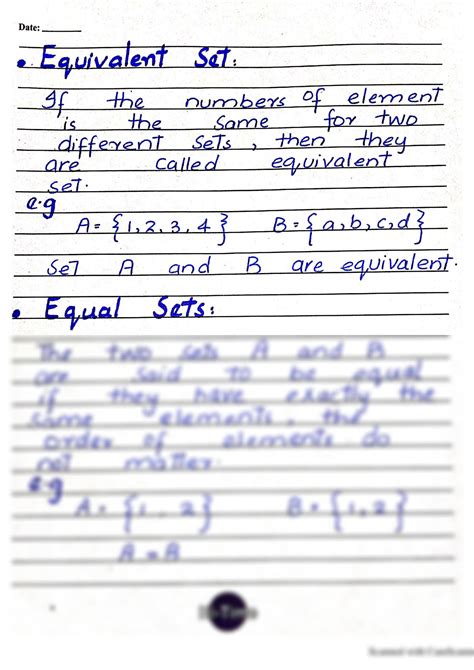 Date:
• Equivalent Set:
If the numbers of element
is the same for two
different sets, then they
are called equivalent
set.
e.g
A = {1, 2, 3, 4} B = {a, b, c, d}
Set A and B are equivalent.
• Equal Sets:
The two sets A and B
are said to be equal
if they have exactly the
same elements, the
order of elements do
not matter.
e.g
A = {1, 2} B = {1, 2}
A = A
Scanned with